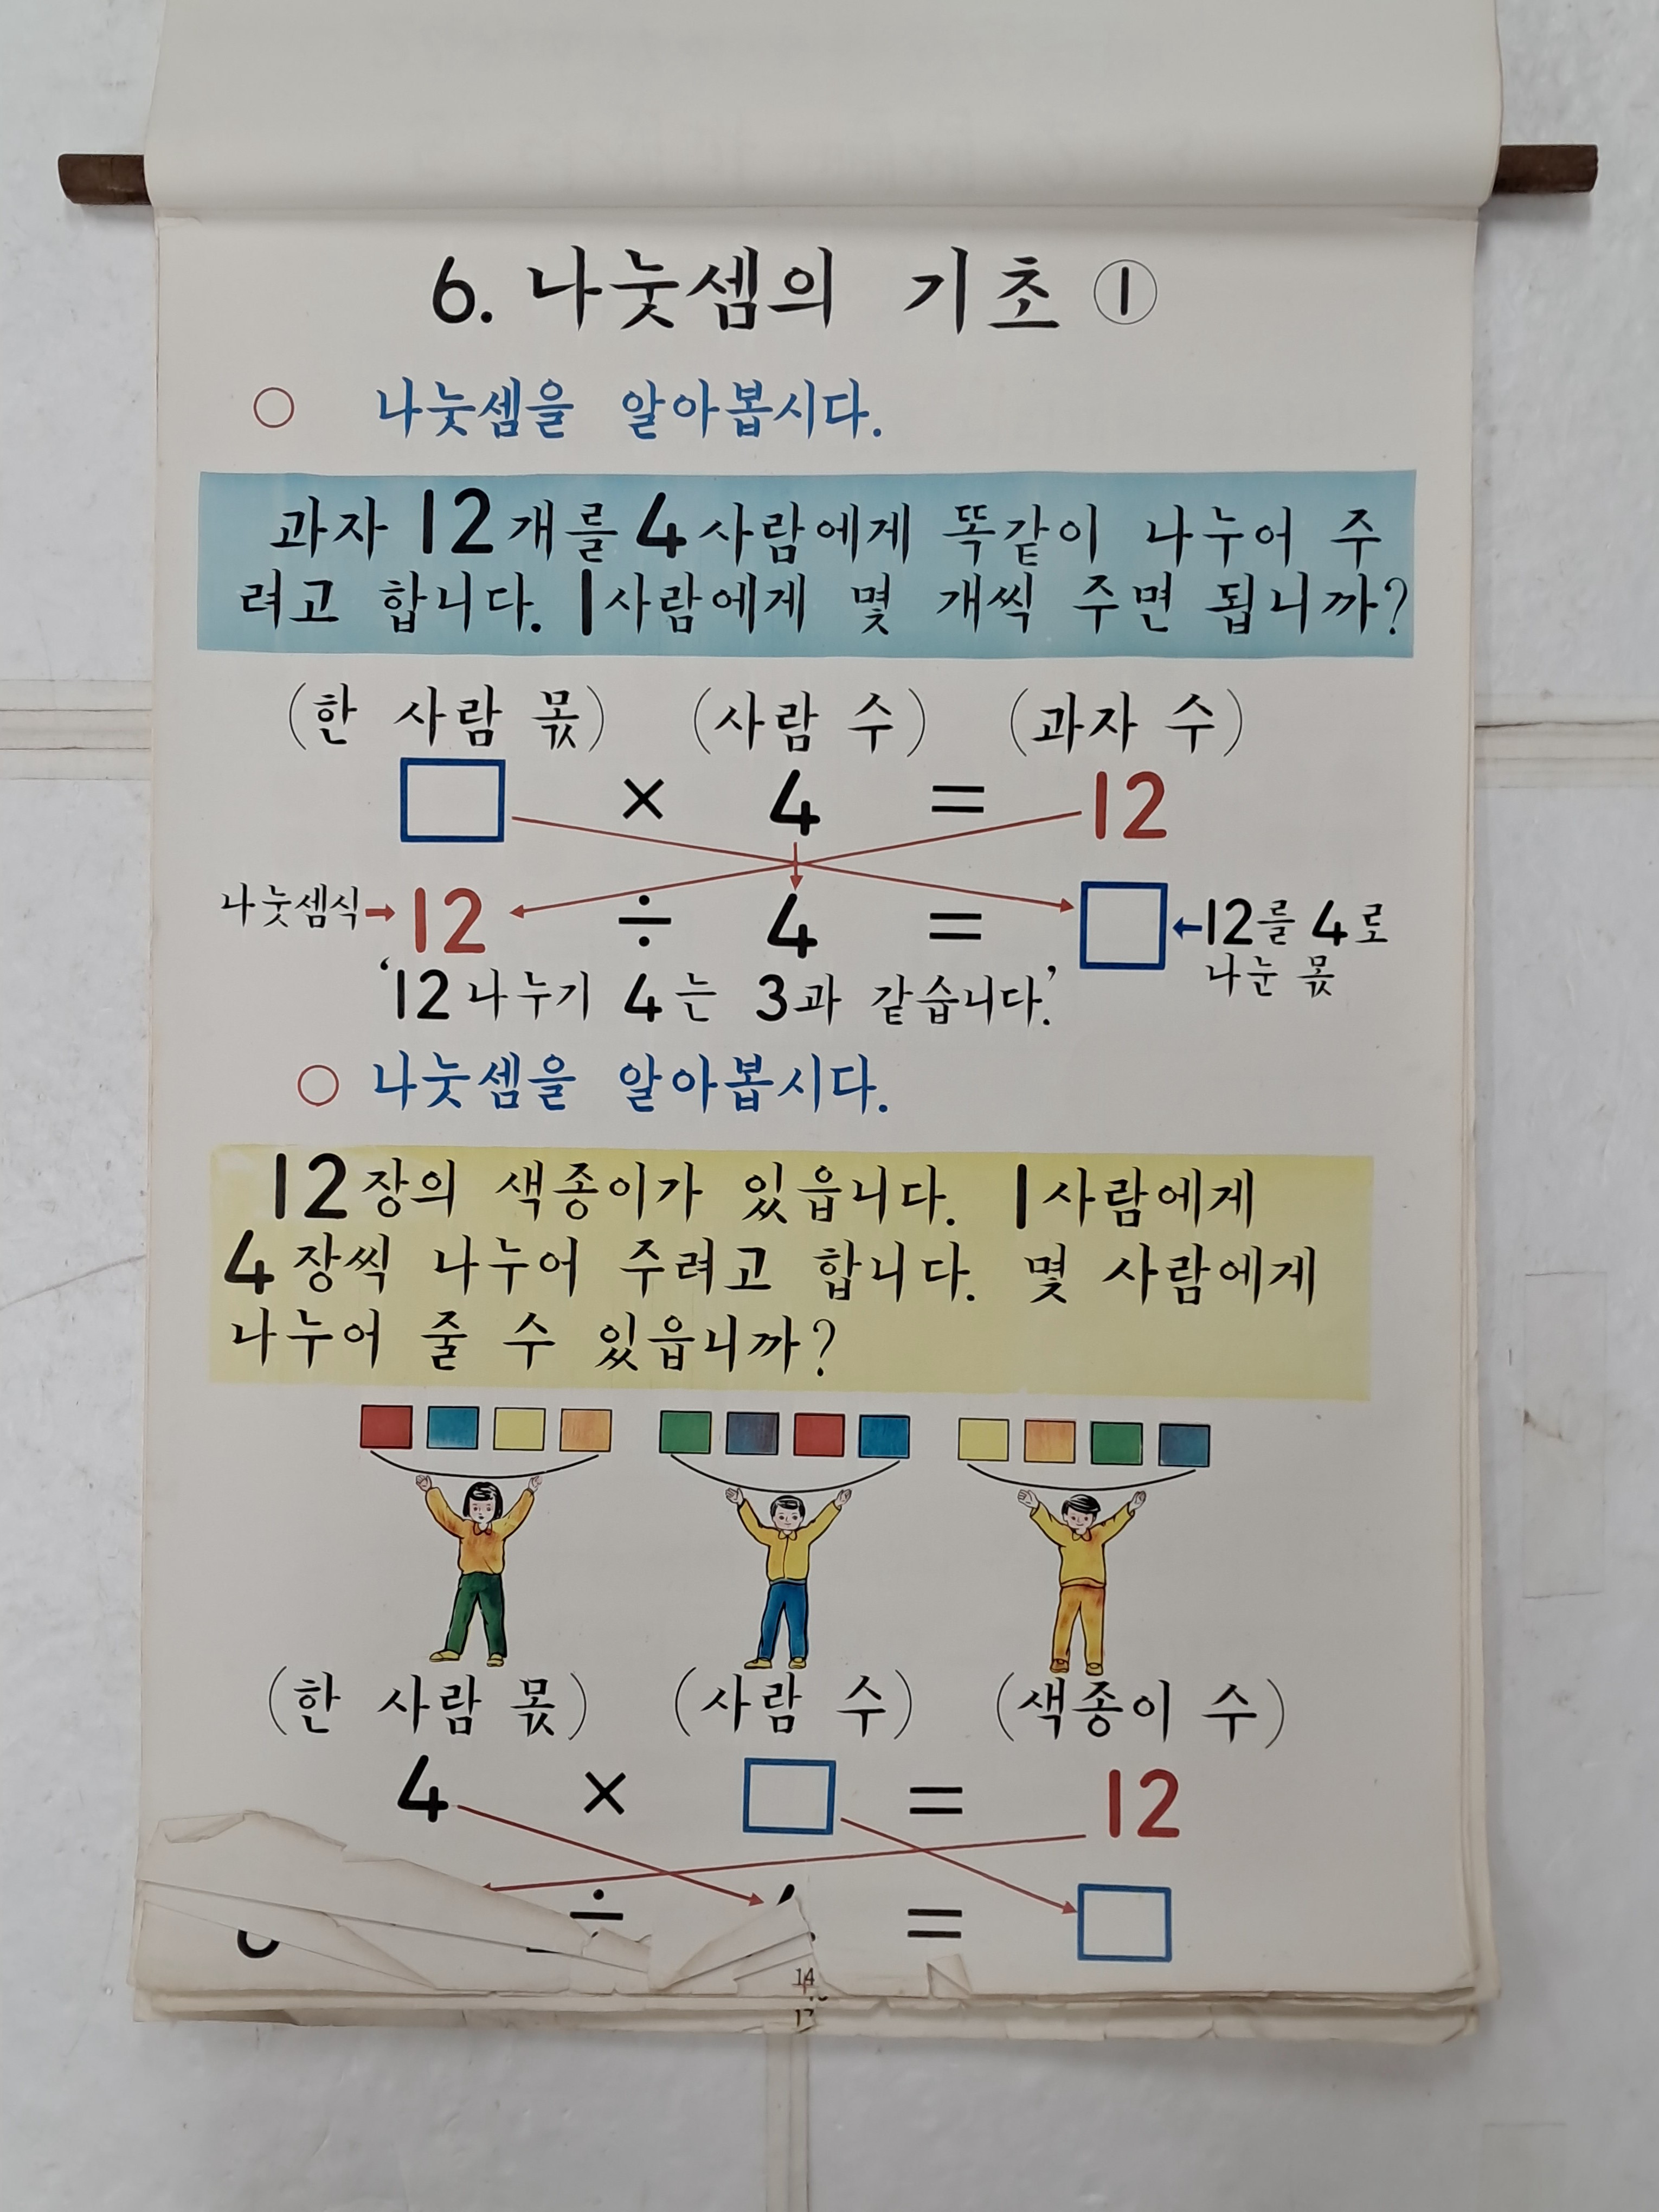 6. 나눗셈의 기초 ①
○ 나눗셈을 알아봅시다.
과자 12개를 4사람에게 똑같이 나누어 주
려고 합니다. 1사람에게 몇 개씩 주면 됩니까?
(한 사람 몫) (사람 수) (과자 수)
□ × 4 = 12
나눗셈식→12 ÷ 4 = □←12를 4로
나눈 몫
‘12나누기 4는 3과 같습니다.’
○ 나눗셈을 알아봅시다.
12장의 색종이가 있읍니다. 1사람에게
4장씩 나누어 주려고 합니다. 몇 사람에게
나누어 줄 수 있읍니까?
(한 사람 몫) (사람 수) (색종이 수)
4 × □ = 12
÷ = □
14